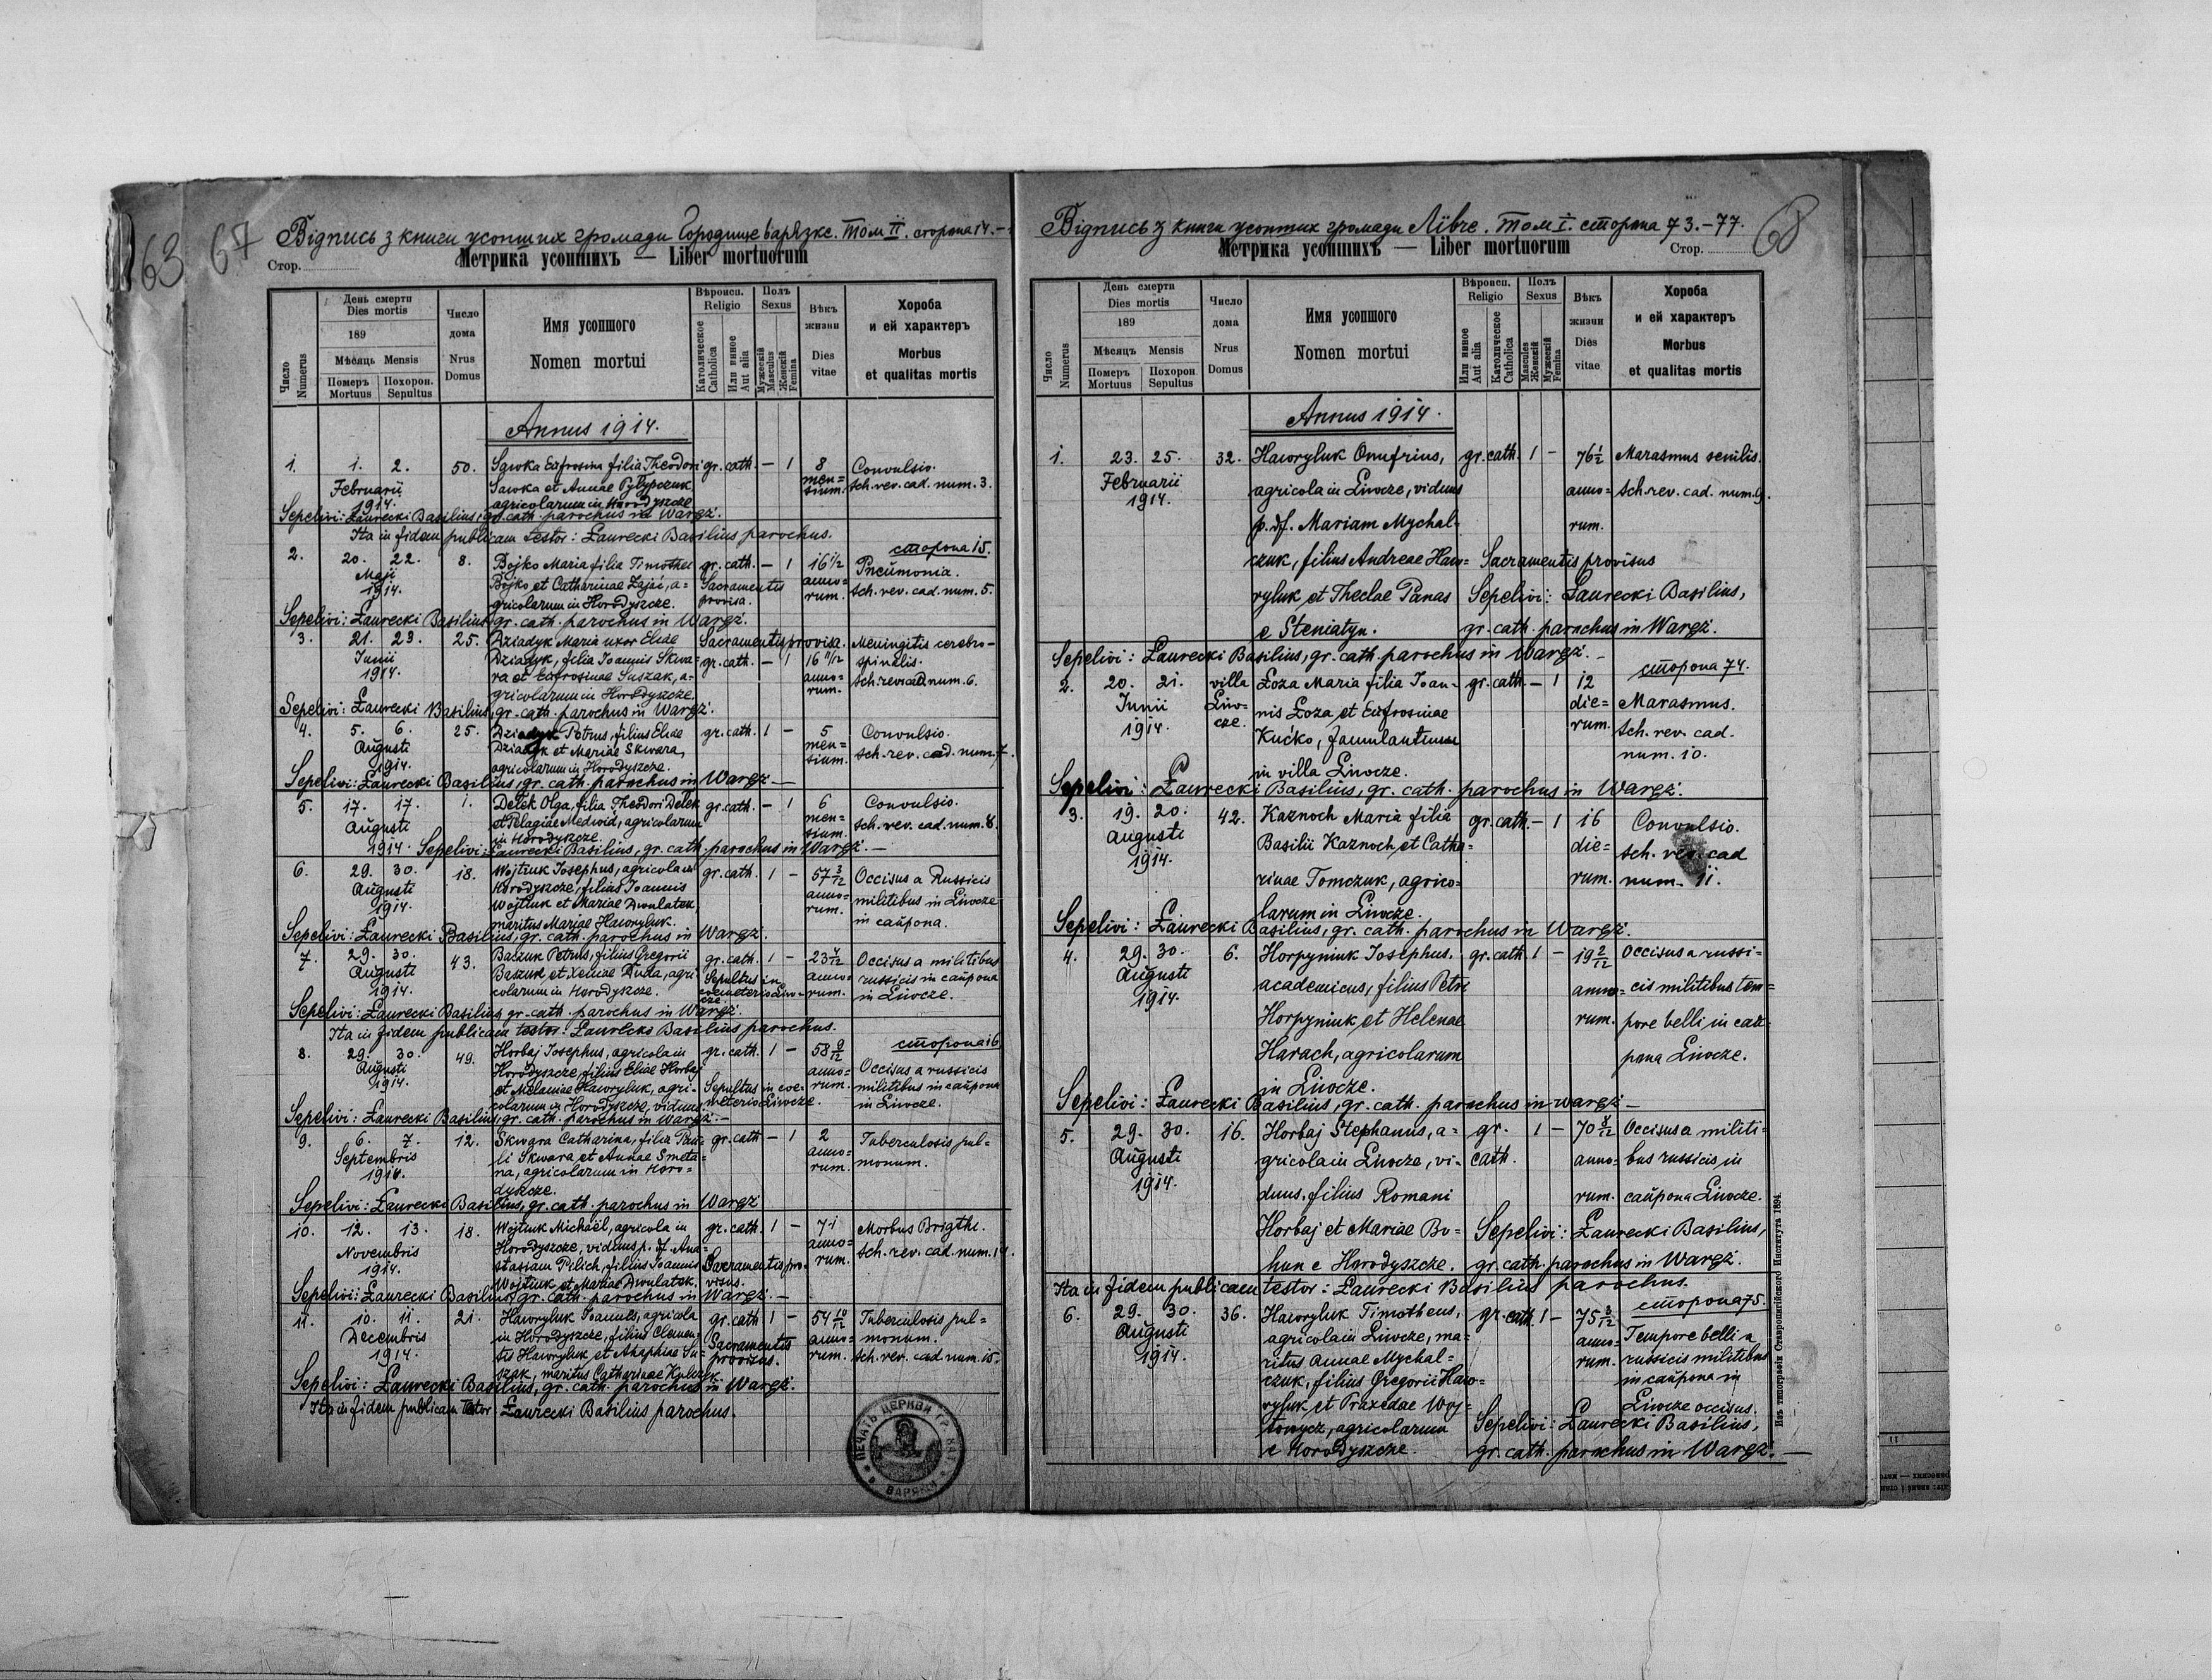 163 67 Відпись з книги усопших громади Городище варязке. Том II. сторона 14.
Стор. Метрика усопшихъ — Liber mortuorum
Число Numerus
День смерти
Dies mortis
189
Мѣсяць Mensis
Померъ Mortuus
Похорон. Sepultus
Число дома
Nrus Domus
Имя усопшого
Nomen mortui
Вѣроисп. Religio
Католическое Catholica
Или инное Aut alia
Полъ Sexus
Мужескій Masculus
Женскій Femina
Вѣкъ жизни
Dies vitae
Хороба
и ей характеръ
Morbus
et qualitas mortis
Annus 1914.
1. 1. 2. 50. Sawka Eufrosina filia Theodori gr. cath. — 1 8 Convulsio.
Februarii Sawka et Annae Pylypczuk men= sch. rev. cad. num. 3.
1914. agricolarum in Horodyszcze sium.
Sepelivi: Ławrecki Basilius, gr. cath. parochus in Waręż.
Ita in fidem publicam testor: Ławrecki Basilius parochus.
сторона 15.
2. 20. 22. 8. Bojko Maria filia Timothei gr. cath. — 1 16 1/2 Pneumonia.
Maji Bojko et Catharinae Zajać, a= Sacramentis anno= sch. rev. cad. num. 5.
1914. gricolarum in Horodyszcze. provisa. rum.
Sepelivi: Ławrecki Basilius, gr. cath. parochus in Waręż.
3. 21. 23. 25. Dziadyk Maria uxor Eliae Sacramentis provisa. Meningitis cerebro=
Junii Dziadyk, filia Joannis Skwa= gr. cath. — 1 16 11/12 spinalis.
1914. ra et Eufrosinae Suszak, a= anno= sch. rev. cad. num. 6.
gricolarum in Horodyszcze rum.
Sepelivi: Ławrecki Basilius, gr. cath. parochus in Waręż.
4. 5. 6. 25. Dziadyk Petrus, filius Eliae gr. cath. 1 — 5 Convulsio.
Augusti Dziadyk et Mariae Skwara, men= sch. rev. cad. num. 7.
1914. agricolarum in Horodyszcze. sium.
Sepelivi: Ławrecki Basilius, gr. cath. parochus in Waręż —
5. 17. 17. 1. Detek Olga, filia Theodori Detek gr. cath. — 1 6 Convulsio.
Augusti et Pelagiae Medwid, agricolarum men= sch. rev. cad. num. 8.
in Horodyszcze. sium.
1914. Sepelivi: Ławrecki Basilius, gr. cath. parochus in Waręż. —
6. 29. 30. 18. Wojtiuk Josephus, agricola in gr. cath. 1 — 57 3/12 Occisus a Russicis
Augusti Horodyszcze, filius Joannis anno= militibus in Liwcze
1914. Wojtiuk et Mariae Dwulatek, rum. in caupona.
maritus Mariae Hawryluk.
Sepelivi: Ławrecki Basilius, gr. cath. parochus in Waręż.
7. 29. 30. 43. Baczuk Petrus, filius Gregorii gr. cath. 1 — 23 4/12 Occisus a militibus
Augusti Baczuk et Xeniae Ruda, agri= Sepultus in anno= russicis in caupona
1914. colarum in Horodyszcze. coemeterio Liw= rum. in Liwcze.
cze.
Sepelivi: Ławrecki Basilius gr. cath. parochus in Waręż.
Ita in fidem publicam testor: Ławrecki Basilius parochus.
сторона 16
8. 29. 30. 49. Horbaj Josephus, agricola in gr. cath. 1 — 58 9/12
Augusti Horodyszcze, filius Eliae Horbaj anno= Occisus a russicis
1914. et Melaniae Hawryluk, agri= Sepultus in coe= rum. militibus in caupona
colarum in Horodyszcze, viduus. meterio Liwcze. in Liwcze.
Sepelivi: Ławrecki Basilius, gr. cath. parochus in Waręż. —
9. 6. 7. 12. Skwara Catharina, filia Pau= gr. cath — 1 2 Tuberculosis pul=
Septembris li Skwara et Annae Smeta= anno= monum.
1914. na, agricolarum in Horo= rum.
dyszcze.
Sepelivi: Ławrecki Basilius, gr. cath. parochus in Waręż
10. 12. 13. 18. Wojtiuk Michaël, agricola in gr. cath. 1 — 71 Morbus Brigthi.
Novembris Horodyszcze, viduus p. df. Ana= anno= sch. rev. cad. num. 14.
1914. stasiam Pilich, filius Joannis Sacramentis pro= rum.
Wojtiuk et Mariae Dwulatek. visus.
Sepelivi: Ławrecki Basilius gr. cath. parochus in Waręż. —
11. 10. 11. 21. Hawryluk Joannes, agricola gr. cath 1 — 54 10/12 Tuberculosis pul=
Decembris in Horodyszcze, filius Clemen= Sacramentis anno= monum.
1914. tis Hawryluk et Ahaphiae Su= provisus. rum. sch. rev. cad num. 15.
szak, maritus Catharinae
Sepelivi: Ławrecki Basilius, gr. cath. parochus in Waręż.
Ita in fidem publicam testor Ławrecki Basilius parochus.
ПЕЧАТЬ ЦЕРКВИ ГР. КАТ.
ВАРЯЖИ
Відпись з книги усопших громади Лівче. Том I. сторона 73.-77. 68
Метрика усопшихъ — Liber mortuorum Стор.
Число Numerus
День смерти
Dies mortis
189
Мѣсяцъ Mensis
Померъ Mortuus
Похорон. Sepultus
Число дома
Nrus Domus
Имя усопшого
Nomen mortui
Вѣроисп. Religio
Или инное Aut alia
Католическое Catholica
Полъ Sexus
Masculus Женскій
Мужескій Femina
Вѣкъ жизни
Diés vitae
Хороба
и ей характеръ
Morbus
et qualitas mortis
Annus 1914.
1. 23. 25. 32. Hawryluk Onufrius, gr. cath. 1 — 76 1/2 Marasmus senilis.
Februarii agricola in Liwcze, viduus anno= sch. rev. cad. num. 9.
1914. p. df. Mariam Mychal= rum.
czuk, filius Andreae Haw= Sacramentis provisus
ryluk et Theclae Panas Sepelivi: Ławrecki Basilius,
e Steniatyn. gr. cath. parochus in Waręż.
Sepelivi: Ławrecki Basilius, gr. cath. parochus in Waręż. —
сторона 74.
2. 20. 21. villa Łoza Maria filia Joan= gr. cath. — 1 12
Junii Liw= nis Łoza et Eufrosinae die= Marasmus.
1914. cze. Kućko, famulantium rum. sch. rev. cad.
in villa Liwcze. num. 10.
Sepelivi: Ławrecki Basilius, gr. cath. parochus in Waręż.
3. 19. 20. 42. Kaznoch Maria filia gr. cath. — 1 16 Convulsio.
Augusti Basilii Kaznoch et Catha= die= sch. rev. cad
1914. rinae Tomczuk, agrico= rum. num. 11.
larum in Liwcze.
Sepelivi: Ławrecki Basilius, gr. cath. parochus in Waręż.
4. 29. 30. 6. Horpyniuk Josephus. gr. cath 1 — 19 2/12 Occisus a russi=
Augusti academicus, filius Petri anno= cis militibus tem=
1914. Horpyniuk et Helenae rum. pore belli in cau=
Harach, agricolarum pona Liwcze.
in Liwcze.
Sepelivi: Ławrecki Basilius, gr. cath. parochus in Waręż —
5. 29. 30. 16. Horbaj Stephanus, a= gr. 1 — 70 8/12 Occisus a militi=
Augusti gricola in Liwcze, vi= cath. anno= bus russicis in
1914. duus, filius Romani rum. caupona Liwcze.
Horbaj et Mariae Bo= Sepelivi: Ławrecki Basilius,
hun e Horodyszcze. gr. cath. parochus in Waręż.
Ita in fidem publicam testor: Ławrecki Basilius parochus.
сторона 75.
6. 29. 30. 36. Hawryluk Timotheus, gr. cath 1 — 75 3/12
Augusti agricola in Liwcze, ma= anno= Tempore belli a
1914. ritus Annae Mychal= rum. russicis militibus
czuk, filius Gregorii Haw= in caupona in
ryluk et Praxedae Woj= Liwcze occisus.
towycz, agricolarum Sepelivi: Ławrecki Basilius,
e Horodyszcze. gr. cath. parochus in Waręż. —
Изъ типографіи Ставропигійского Института 1894.